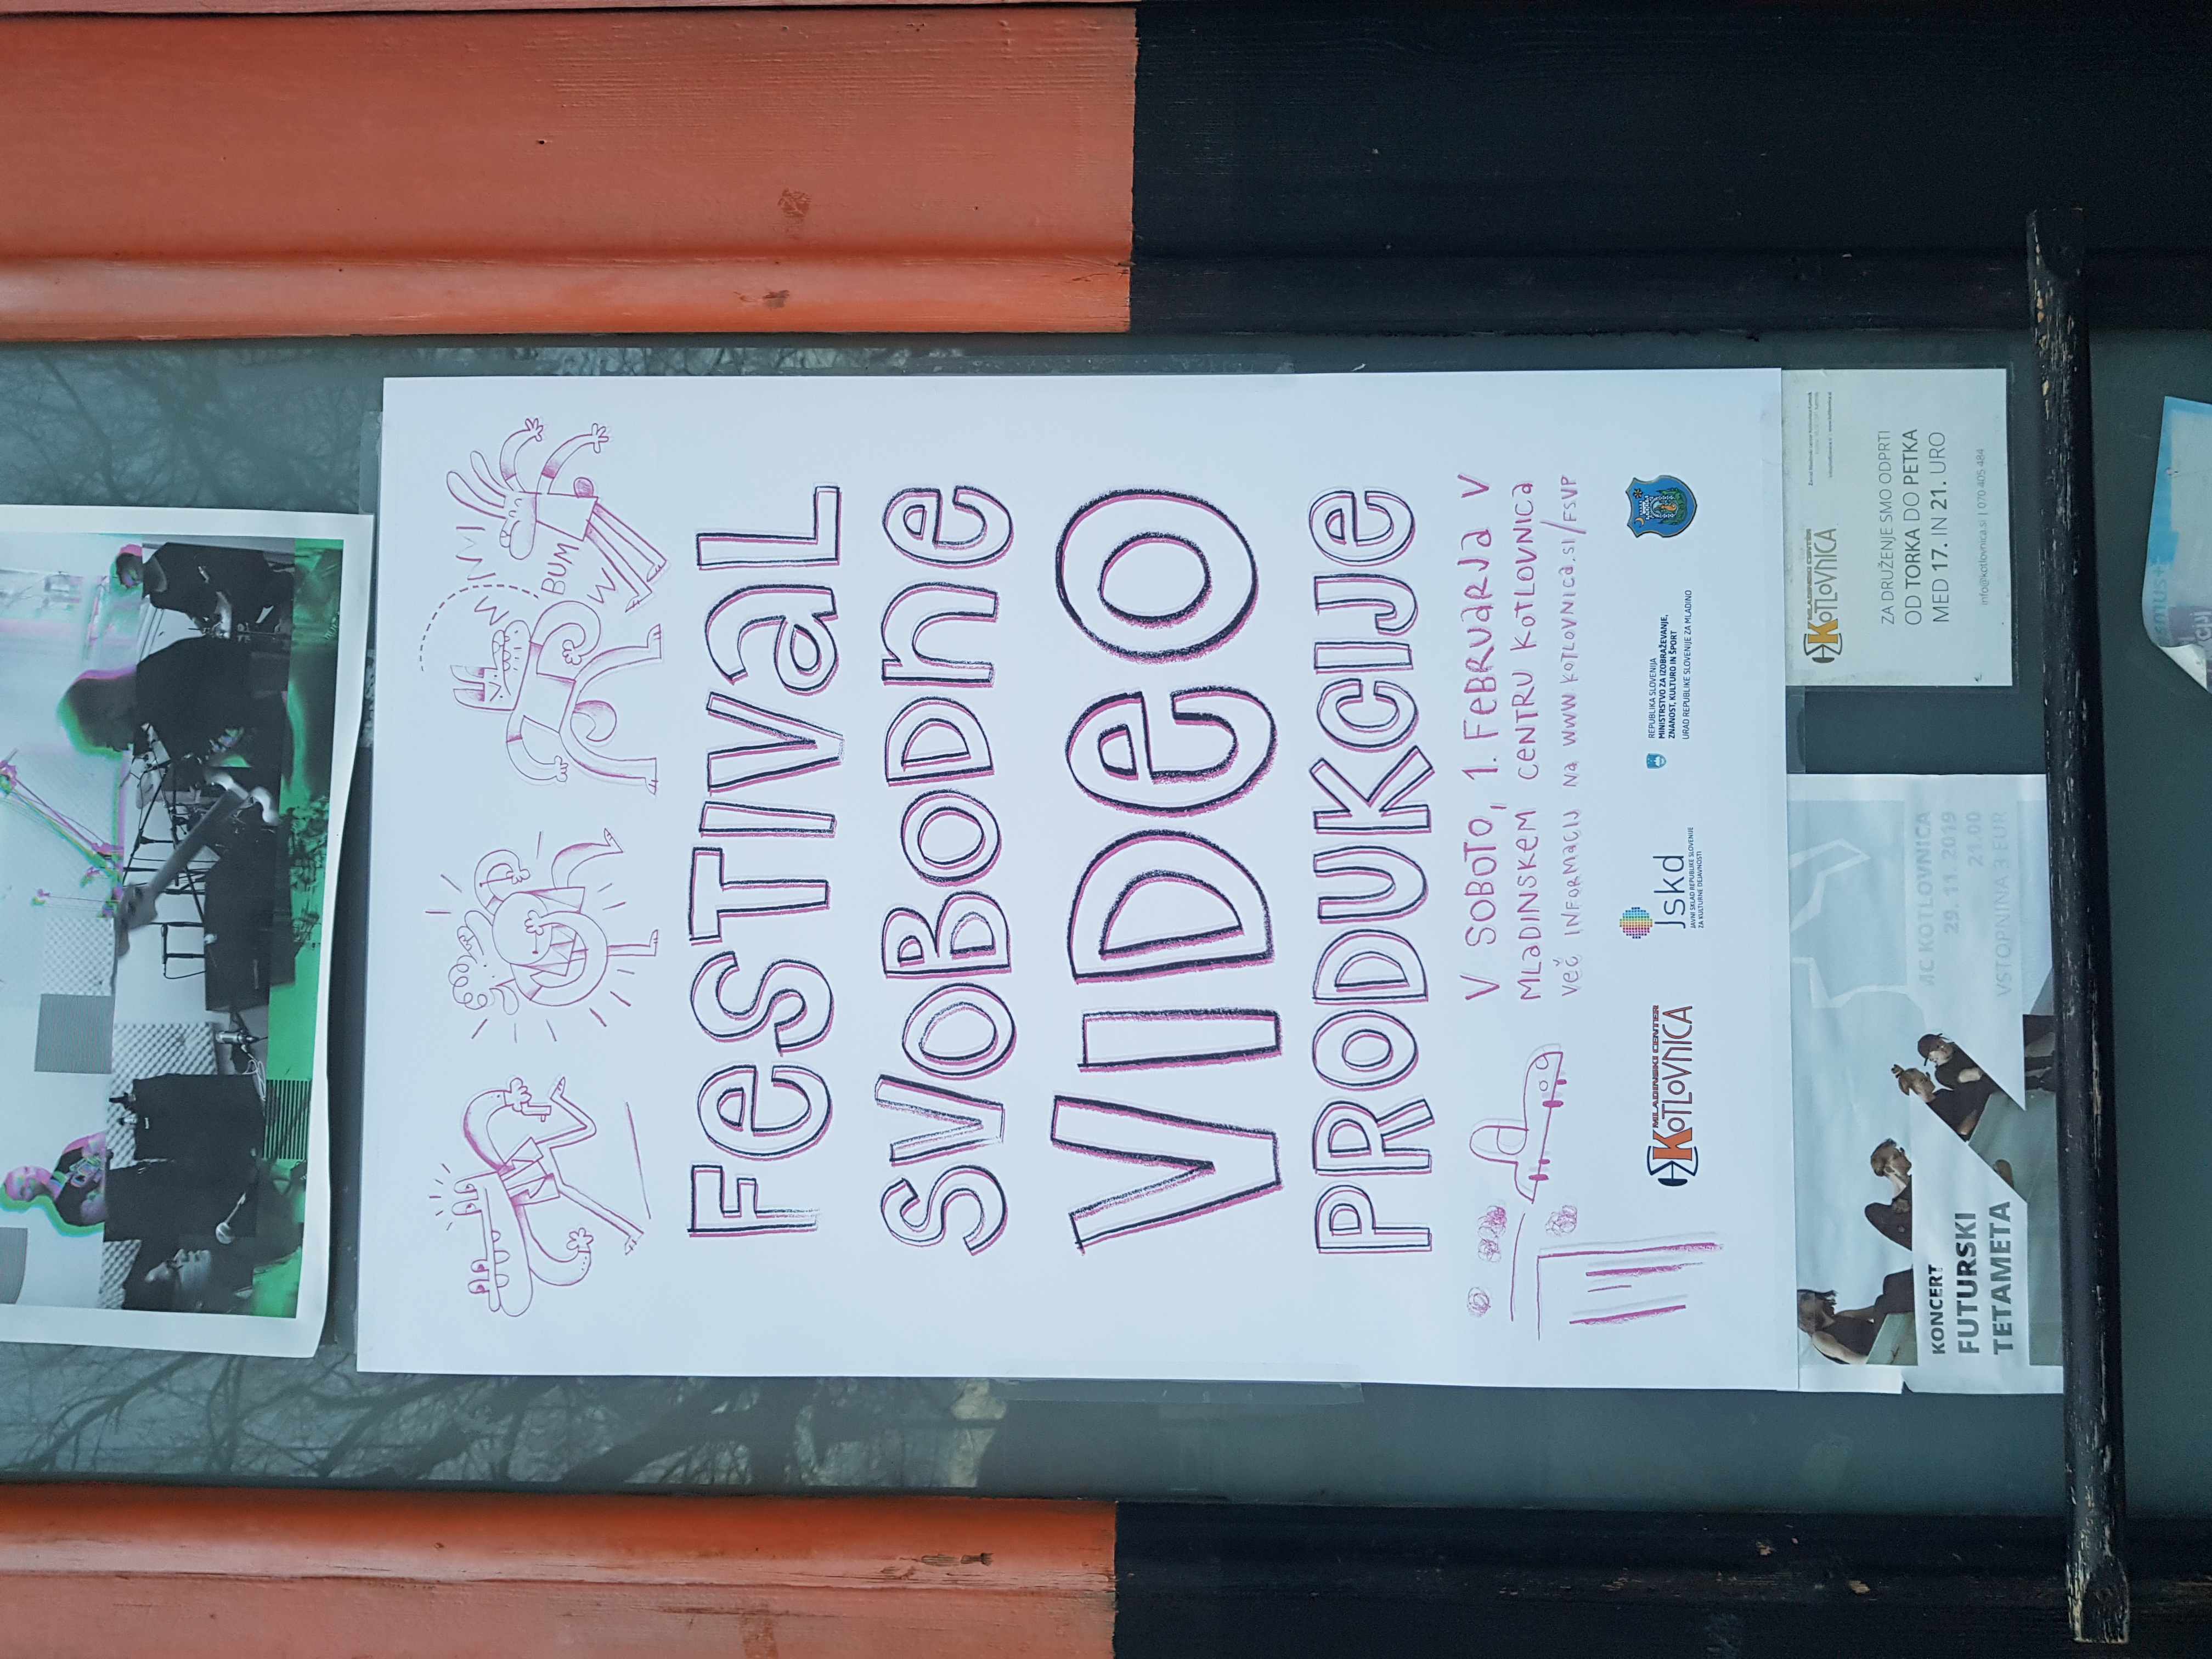 BUM
FeSTIVaL
SVOBODne
VIDeO
PRODUKCIJe
V SOBOTO, 1. FeBRUaRJa V
MLaDINSKEM CeNTRU KOTLOVNICa
Več INFORMaCIJ Na WWW.KOTLOVNICa.SI/FSVP
MLADINSKI CENTER
KOTLOVNICA
Jskd
JAVNI SKLAD REPUBLIKE SLOVENIJE
ZA KULTURNE DEJAVNOSTI
REPUBLIKA SLOVENIJA
MINISTRSTVO ZA IZOBRAŽEVANJE,
ZNANOST, KULTURO IN ŠPORT
URAD REPUBLIKE SLOVENIJE ZA MLADINO
KONCERT
FUTURSKI
TETAMETA
MC KOTLOVNICA
29. 11. 2019
21.00
VSTOPNINA 3 EUR
MLADINSKI CENTER
KOTLOVNICA
ZA DRUŽENJE SMO ODPRTI
OD TORKA DO PETKA
MED 17. IN 21. URO
info@kotlovnica.si | 070 405 484